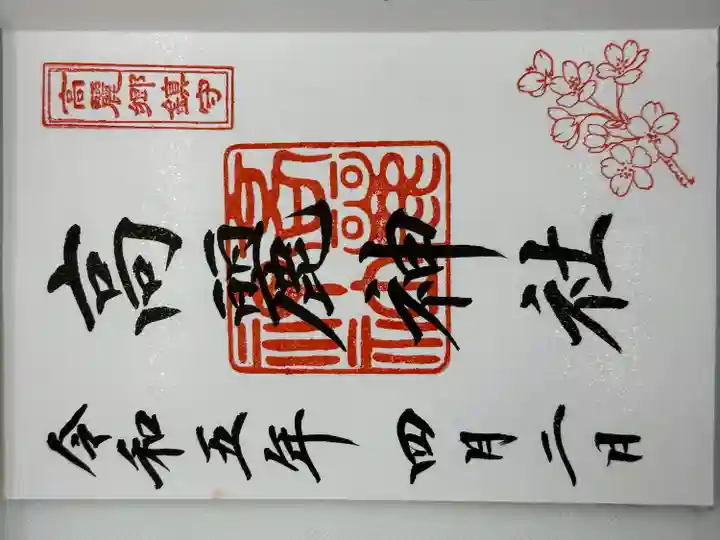 高麗郷鎮守
高麗神社
令和五年 四月二日